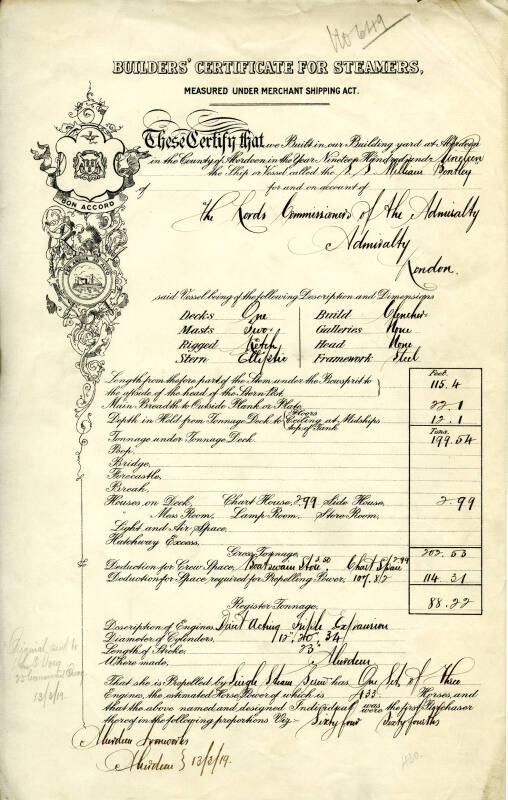 No 649
BUILDERS' CERTIFICATE FOR STEAMERS,
MEASURED UNDER MERCHANT SHIPPING ACT.
These Certify that we Built in our Building yard at Aberdeen
in the County of Aberdeen in the Year Nineteen Hundred and Nineteen
the Ship or Vessel called the S.S. William Bentley
of for and on account of
BON ACCORD
The Lords Commissioners of the Admiralty
Admiralty
London.
said Vessel being of the following Description and Dimensions
Decks One Build Clencher
Masts Two Galleries None
Rigged Ketch Head None
Stern Elliptic Framework Steel
Feet.
Length from the fore part of the Stem under the Bowsprit to
the aftside of the head of the Stern Post 115.4
Main Breadth to Outside Plank or Plate 22.1
Depth in Hold from Tonnage Deck to Floors Ceiling at Midships top of Tank 12.1
Tons.
Tonnage under Tonnage Deck 199.54
Poop.
Bridge.
Forecastle.
Break.
Houses on Deck, Chart House, 2.99 Side House, 2.99
Mess Room, Lamp Room, Store Room,
Light and Air Space,
Hatchway Excess.
Gross Tonnage 202.53
Deduction for Crew Space, Boatswain Store 3.50 Chart Space 2.99
Deduction for Space required for Propelling Power, 107.8/2 114.31
Register Tonnage. 88.22
Description of Engines Direct Acting Triple Expansion
Diameter of Cylinders 34
Length of Stroke 23"
Where made, Aberdeen
That she is Propelled by Single Steam Screw has One Set of Three
Engine, the estimated Horse Power of which is 433 Horses, and
that the above named and designed Individual was were the first Purchaser
thereof in the following proportions Viz Sixty four Sixty fourths
Aberdeen Ironworks
Aberdeen } 13/3/19.
13/3/19.